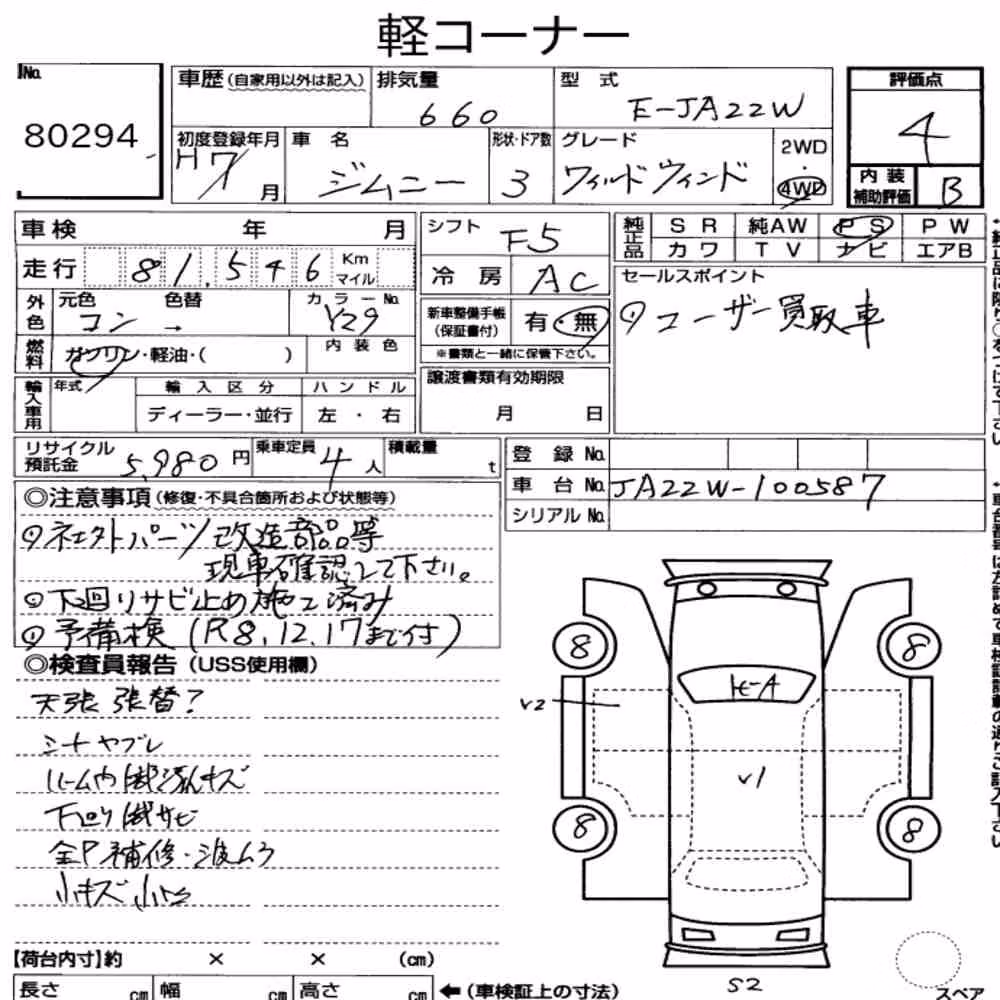 軽コーナー
No.
80294
車歴 (自家用以外は記入)
排気量
660
型 式
E-JA22W
評価点
4
内 装
補助評価
B
初度登録年月
H7/ 月
車 名
ジムニー
形状・ドア数
3
グレード
ワイルドウィンド
2WD
・
4WD
車検 年 月
走行 81,546 Km
マイル
シフト
F5
冷 房
AC
純正品
S R 純AW P S P W
カワ T V ナビ エアB
外色
元色 色替
コン →
カラーNo.
Y29
燃料
ガソリン・軽油・( )
内 装 色
新車整備手帳
(保証書付)
有・無
※書類と一緒に保管下さい。
セールスポイント
ユーザー買取車
輸入車用
年式
輸 入 区 分
ディーラー・並行
ハ ン ド ル
左 ・ 右
譲渡書類有効期限
月 日
リサイクル
預託金
5,980 円
乗車定員
4 人
積載量
t
登 録 No.
車 台 No. JA22W-100587
シリアル No.
◎注意事項 (修復・不具合箇所および状態等)
パーツ 改造部品等
現車確認して下さい。
下回りサビ止め施工済み
予備検 (R8.12.17まで付)
◎検査員報告 (USS使用欄)
天張 張替?
シート ヤブレ
ルーム内
下回り サビ
全P 補修・波ムラ
小キズ
8
8
8
8
V2
V1
S2
【荷台内寸】約 × × (cm)
長さ cm 幅 cm 高さ cm ← (車検証上の寸法)
スペア